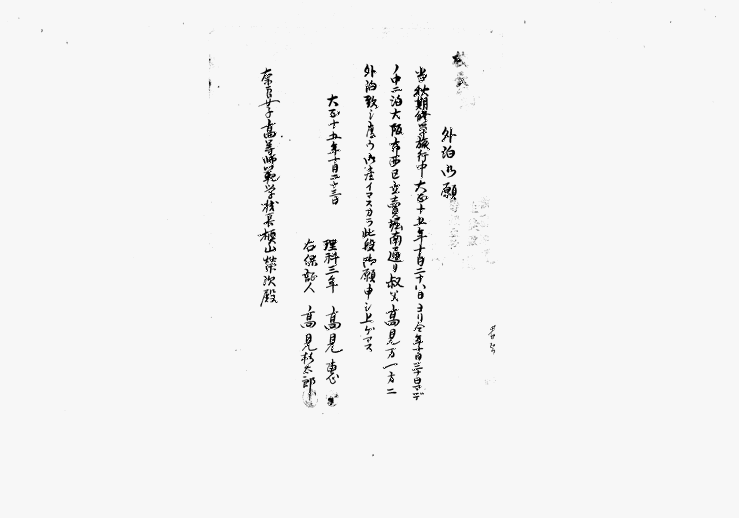 外泊御願
当秋期修学旅行中大正十五年十月二十八日ヨリ仝年十月三十日マデ
ノ中二泊大阪市西区立売堀南通リ叔父高見万一方ニ
外泊致シ度う御座イマスカラ此段御願申シ上ゲマス
大正十五年十月二十三日
理科三年 高見 恵
右保証人 高見杉太郎
奈良女子高等師範学校長槇山榮次殿